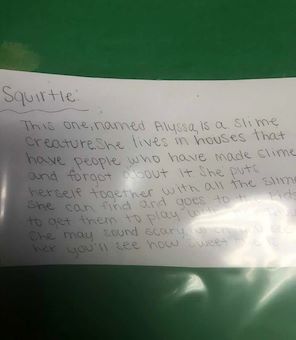 Squirtle:
This one, named Alyssa, is a slime
creature. She lives in houses that
have people who have made slime
and forgot about it she puts
herself together with all the slime
she can find and goes to
to get them to play
She may sound scary
her you'll see how sweet